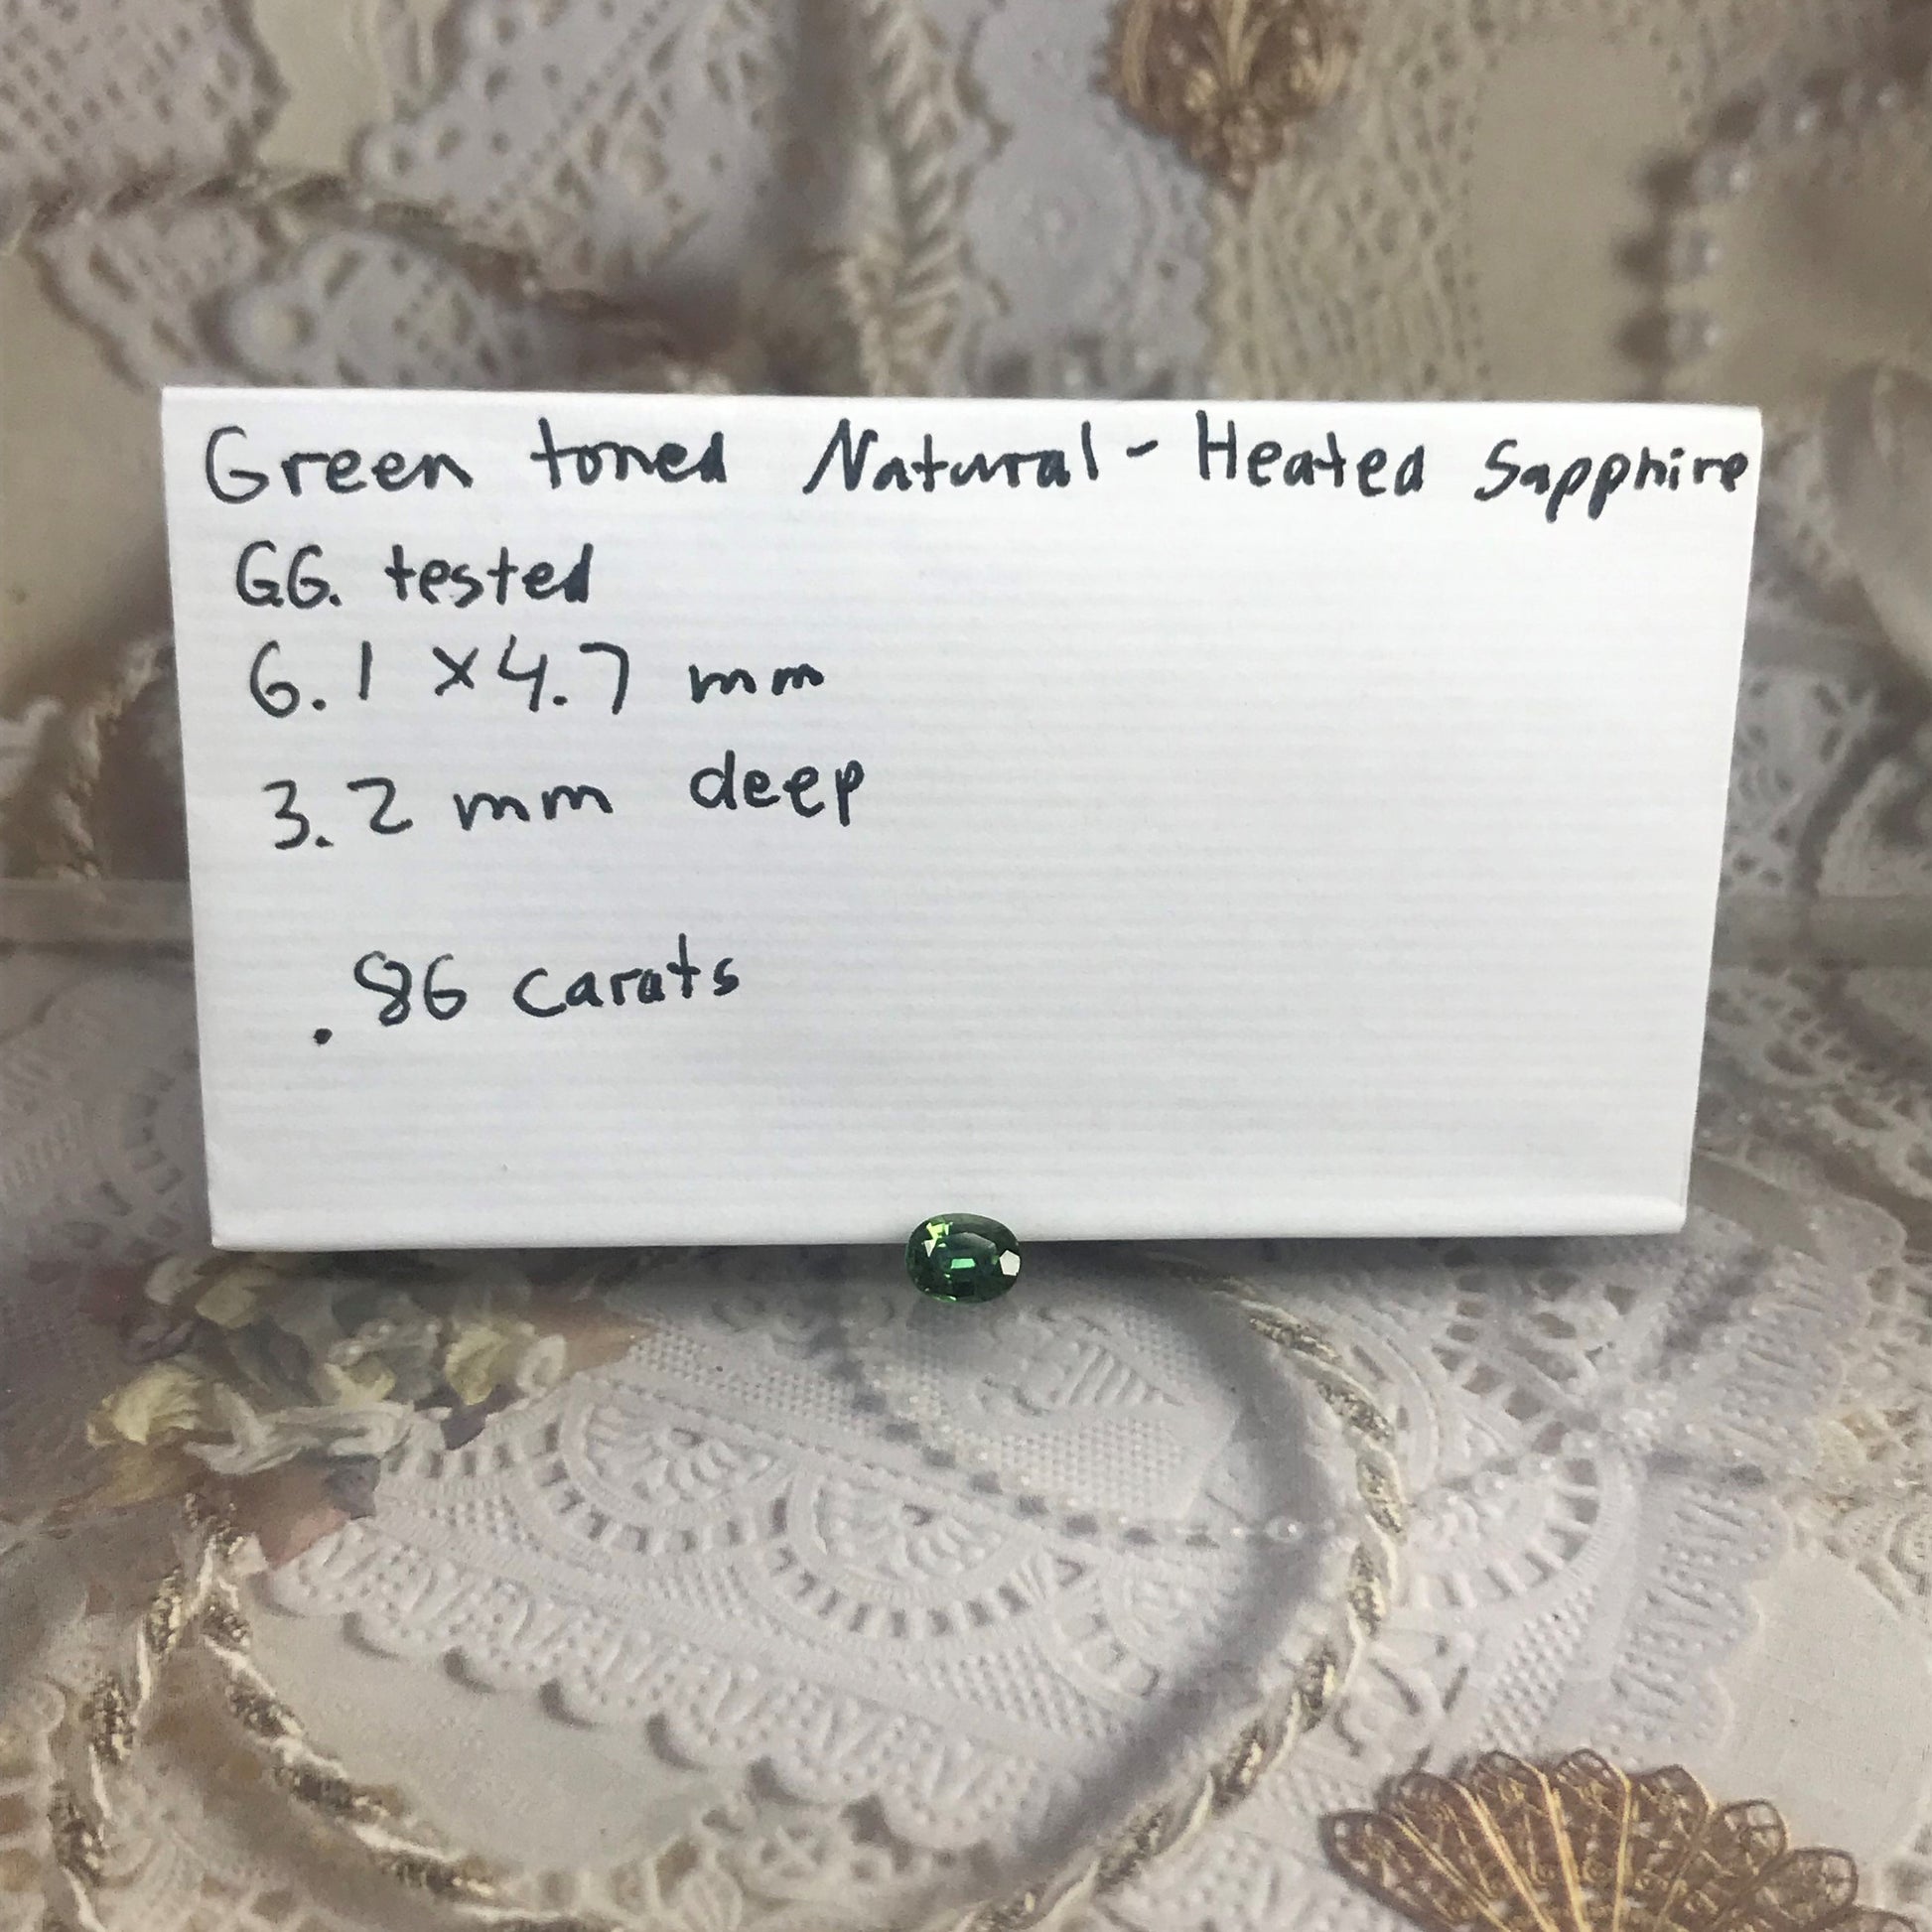 Green toned Natural - Heated Sapphire
G.G. tested
6.1 x 4.7 mm
3.2 mm deep
.86 carats